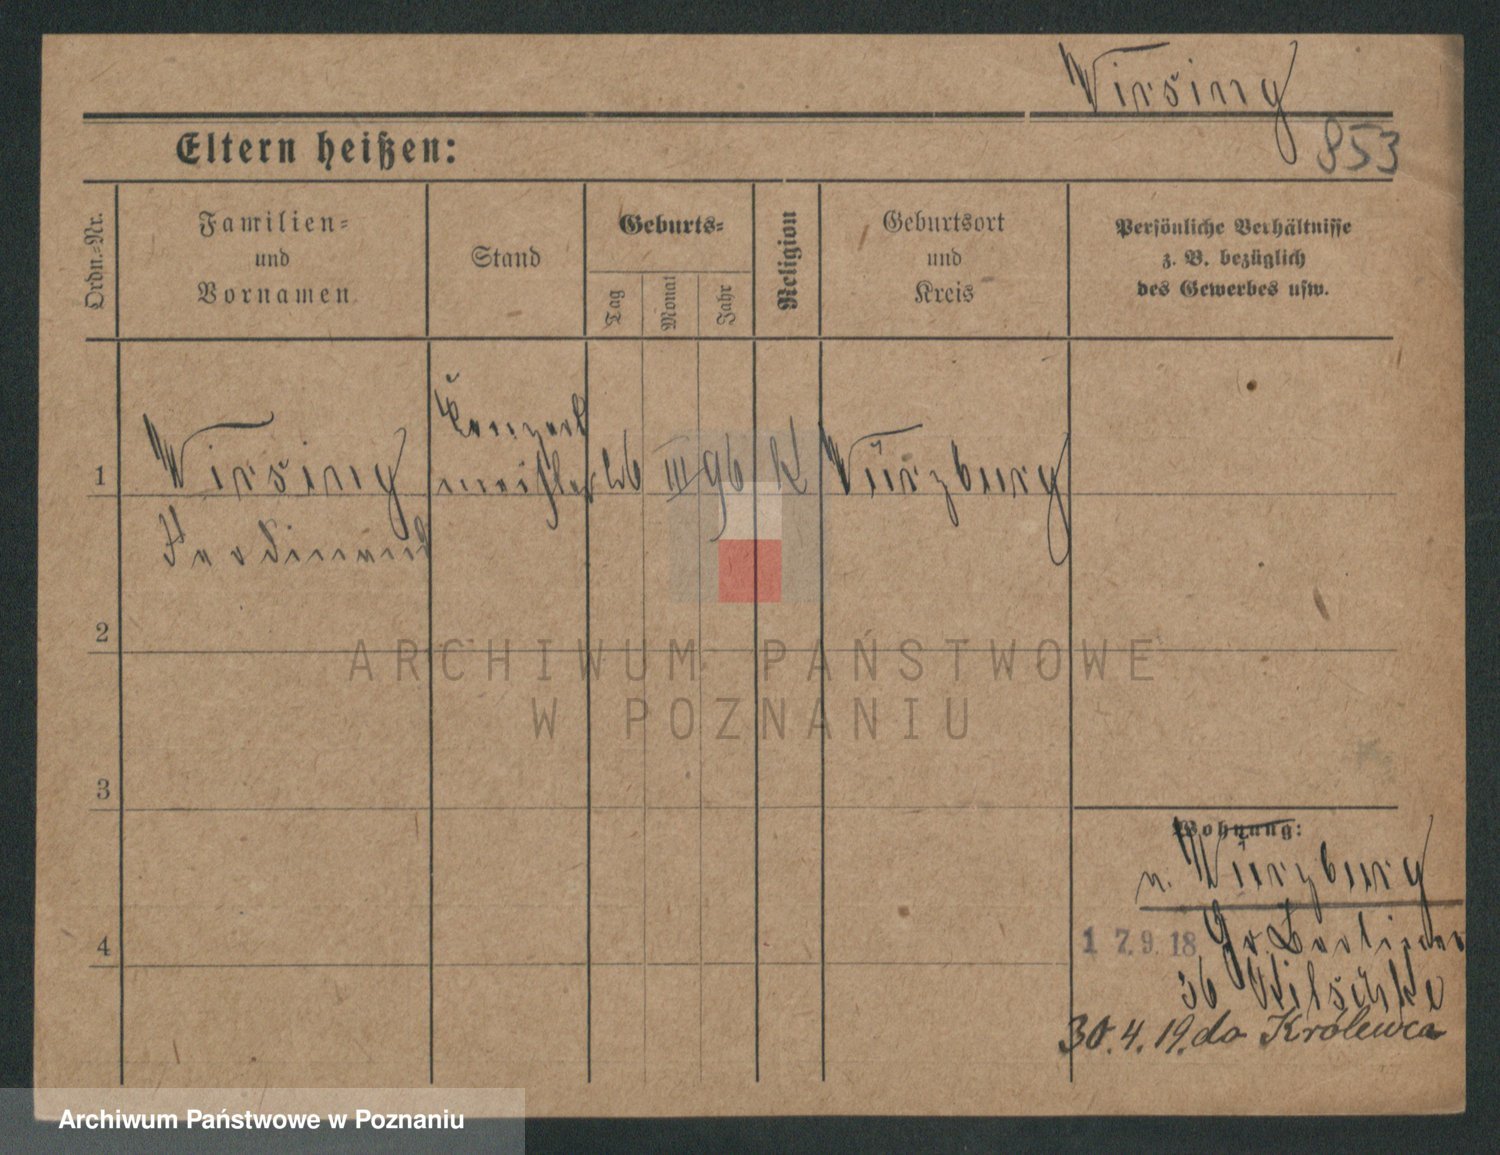 Wirsing
853
Eltern heißen:
Ordn.-Nr.
Familien-
und
Vornamen
Stand
Geburts-
Tag
Monat
Jahr
Religion
Geburtsort
und
Kreis
Persönliche Verhältnisse
z. B. bezüglich
des Gewerbes usw.
1
Wirsing
Ferdinand
Konzert
meister
26
III
96
K
Würzburg
2
3
4
Wohnung:
n. Würzburg
17.9.18 Gr Berliner
36
30.4.19. do Królewca
ARCHIWUM PAŃSTWOWE
W POZNANIU
Archiwum Państwowe w Poznaniu